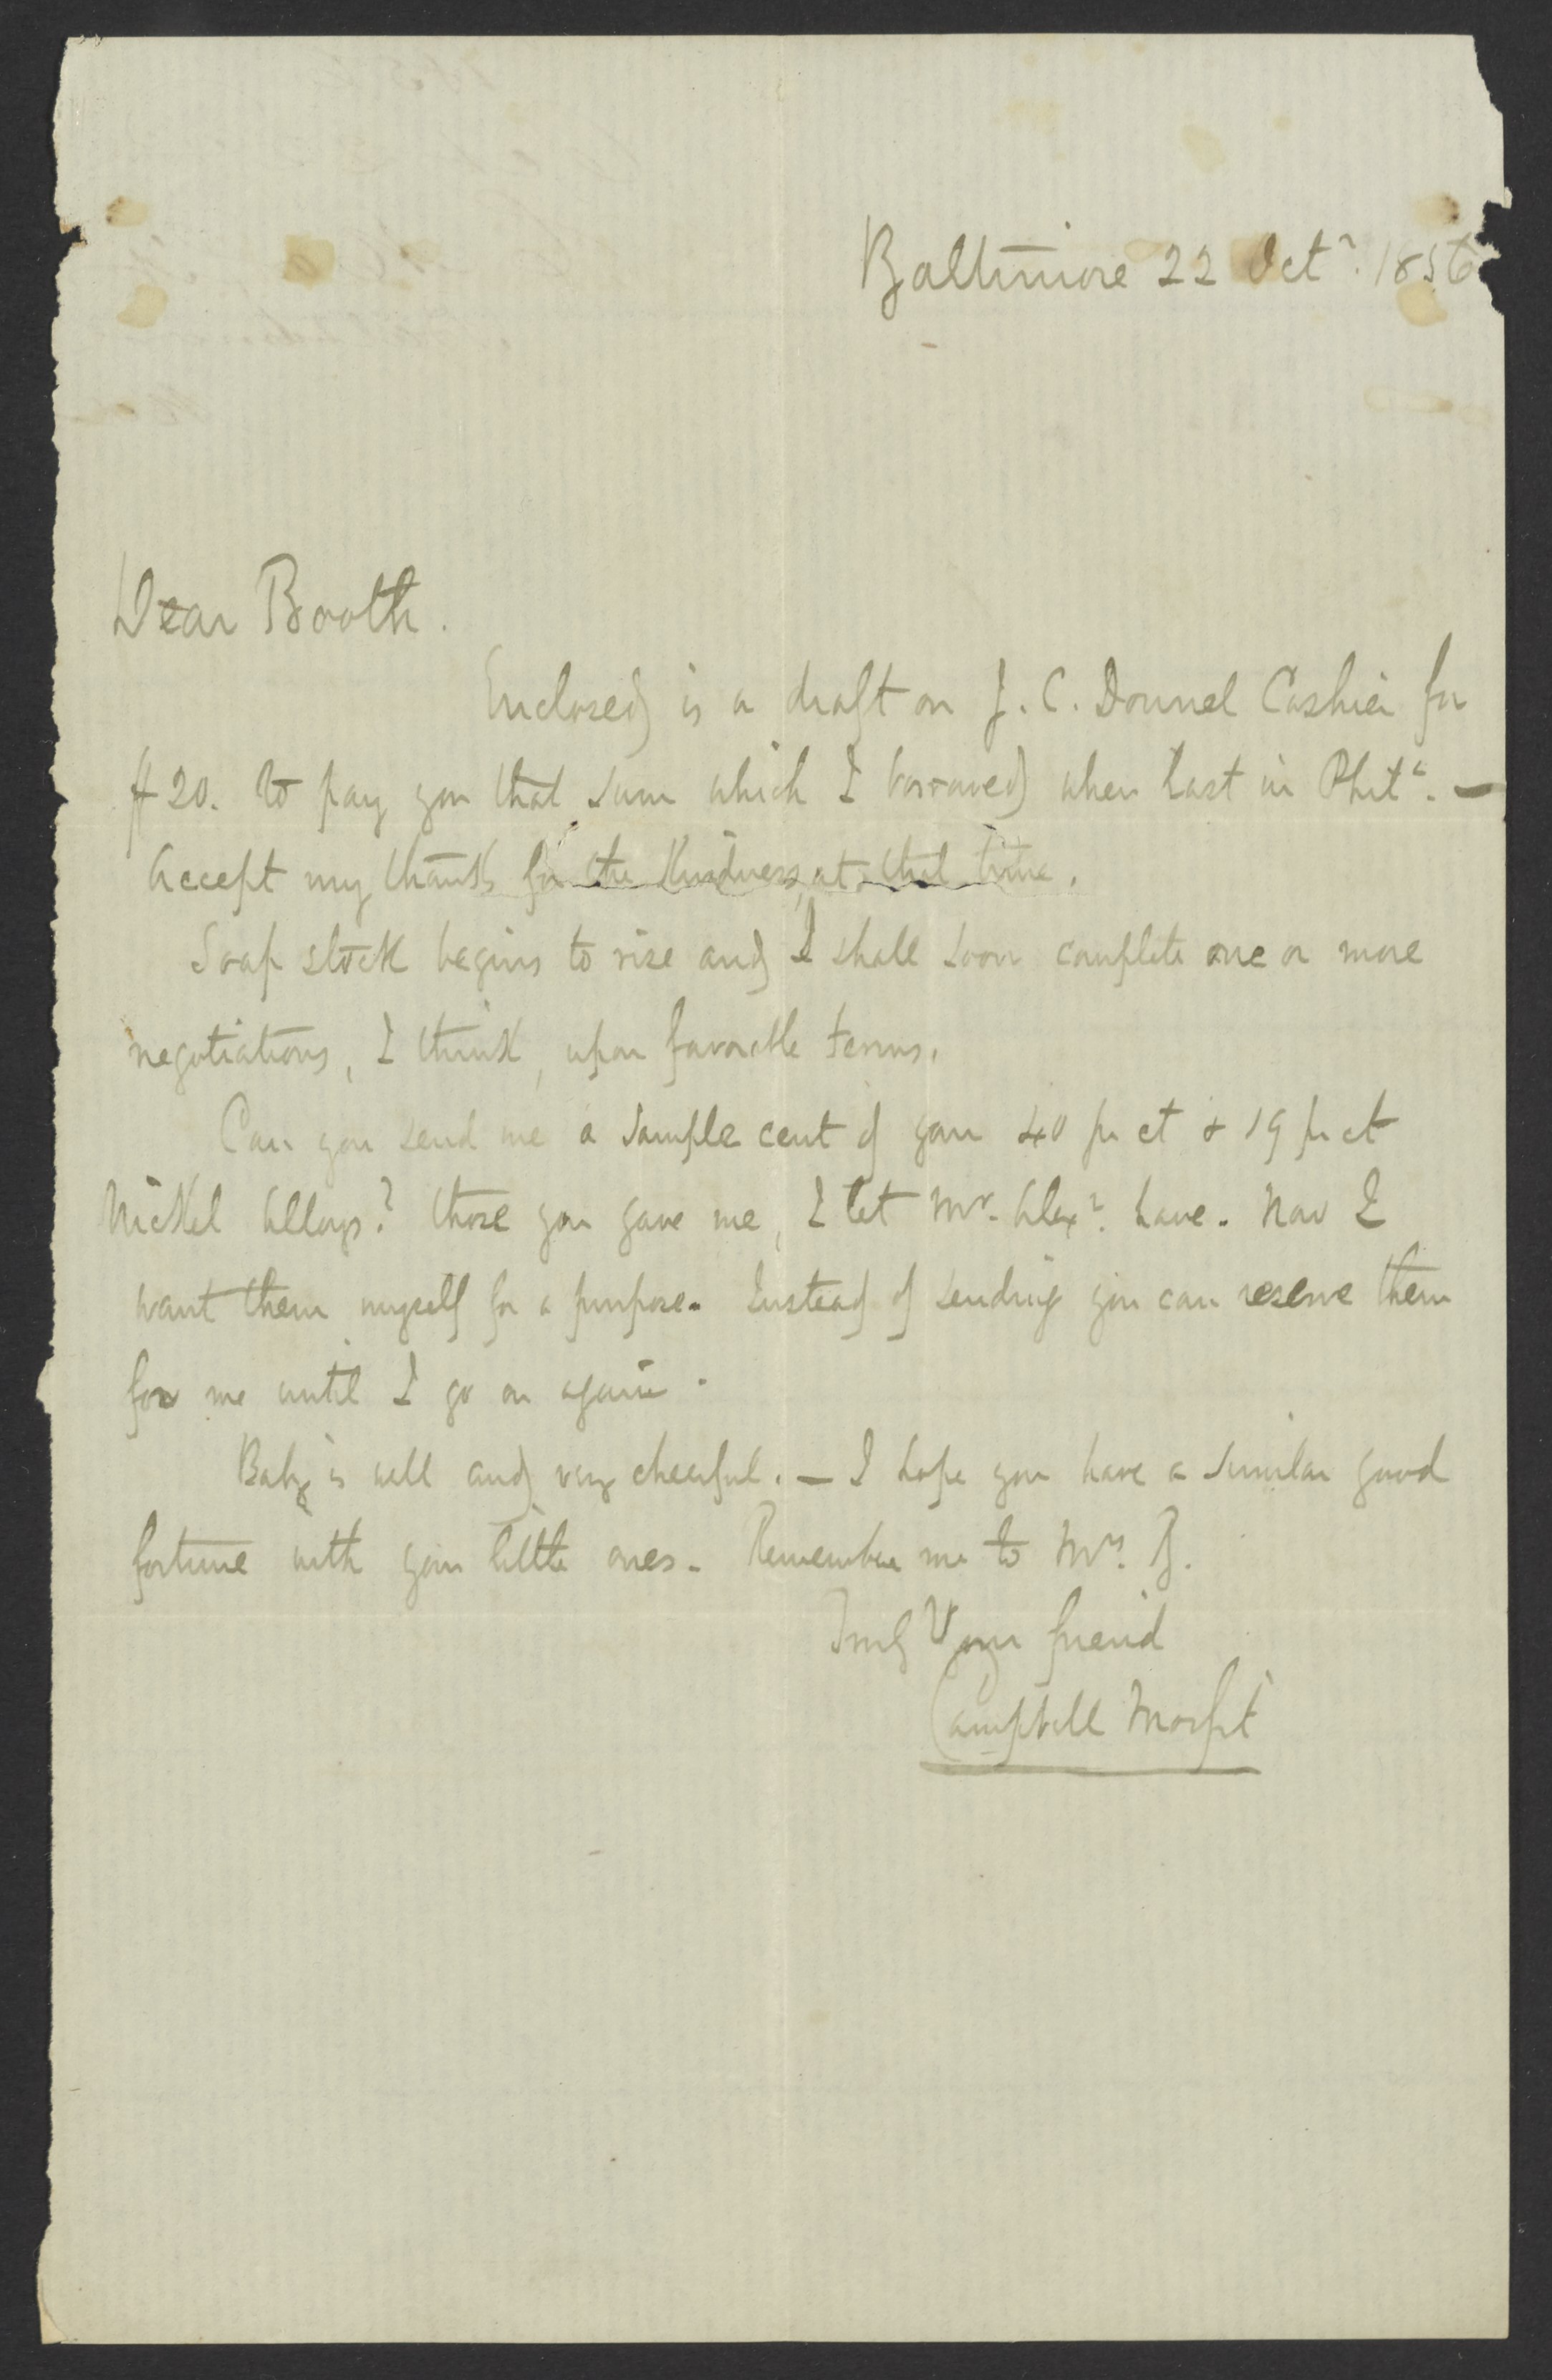 Baltimore 22 Octr. 1856
Dear Booth.
Enclosed is a draft on J. C. Donnel Cashier for
$20. to pay you that sum which I borrowed when last in Phila. —
Accept my thanks for the kindness, at that time.
Soap stock begins to rise and I shall soon complete one or more
negotiations, I think, upon favorable terms.
Can you send me a sample cent of your 40 pr ct & 19 pr ct
Nickel Alloys? those you gave me, I let Mr. Alexr. have. Now I
want them myself for a purpose. Instead of sending you can reserve them
for me until I go on again.
Baby is well and very cheerful. — I hope you have a similar good
fortune with your little ones. Remember me to Mrs. B.
Truly Your friend
Campbell Morfit